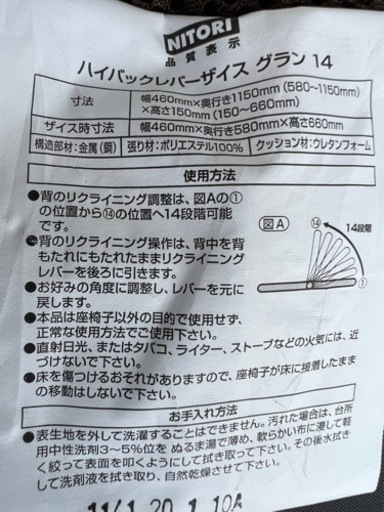 NITORI
品質表示
ハイバックレバーザイス グラン 14
寸法
幅460mm×奥行き1150mm(580〜1150mm)
×高さ150mm(150〜660mm)
ザイス時寸法
幅460mm×奥行き580mm×高さ660mm
構造部材:金属(鋼) 張り材:ポリエステル100% クッション材:ウレタンフォーム
使用方法
●背のリクライニング調整は、図Aの①
の位置から⑭の位置へ14段階可能
です。
●背のリクライニング操作は、背中を背
もたれにもたれたままリクライニング
レバーを後ろに引きます。
●お好みの角度に調整し、レバーを元に
戻します。
図A
⑭
14段階
①
●本品は座椅子以外の目的で使用せず、
正常な使用方法でご使用下さい。
●直射日光、またはタバコ、ライター、ストーブなどの火気には、近
づけないで下さい。
●床を傷つけるおそれがありますので、座椅子が床に接着したまま
の移動はしないで下さい。
お手入れ方法
●表生地を外して洗濯することはできません。汚れた場合は、台所
用中性洗剤3〜5%位を ぬるま湯で薄め、軟らかい布に浸して軽
く絞って表面を叩くようにして拭き取って下さい。その後水拭き
して洗剤液を拭き取り、自然乾燥させて下さい。